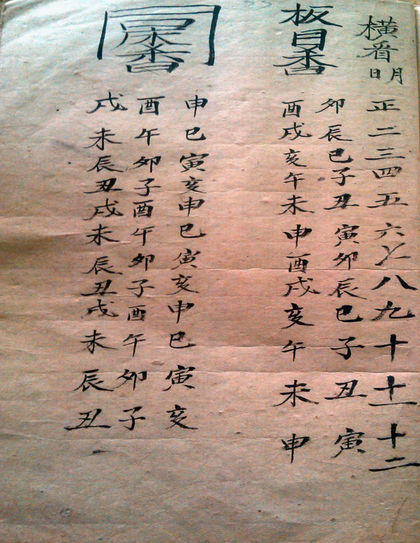 橫看
月
日
正二三四五六七八九十十一十二
板目
卯辰巳子丑寅卯辰巳子丑寅
酉戌亥午未申酉戌亥午未申
申巳寅亥申巳寅亥申巳寅亥
酉午卯子酉午卯子酉午卯子
戌未辰丑戌未辰丑戌未辰丑